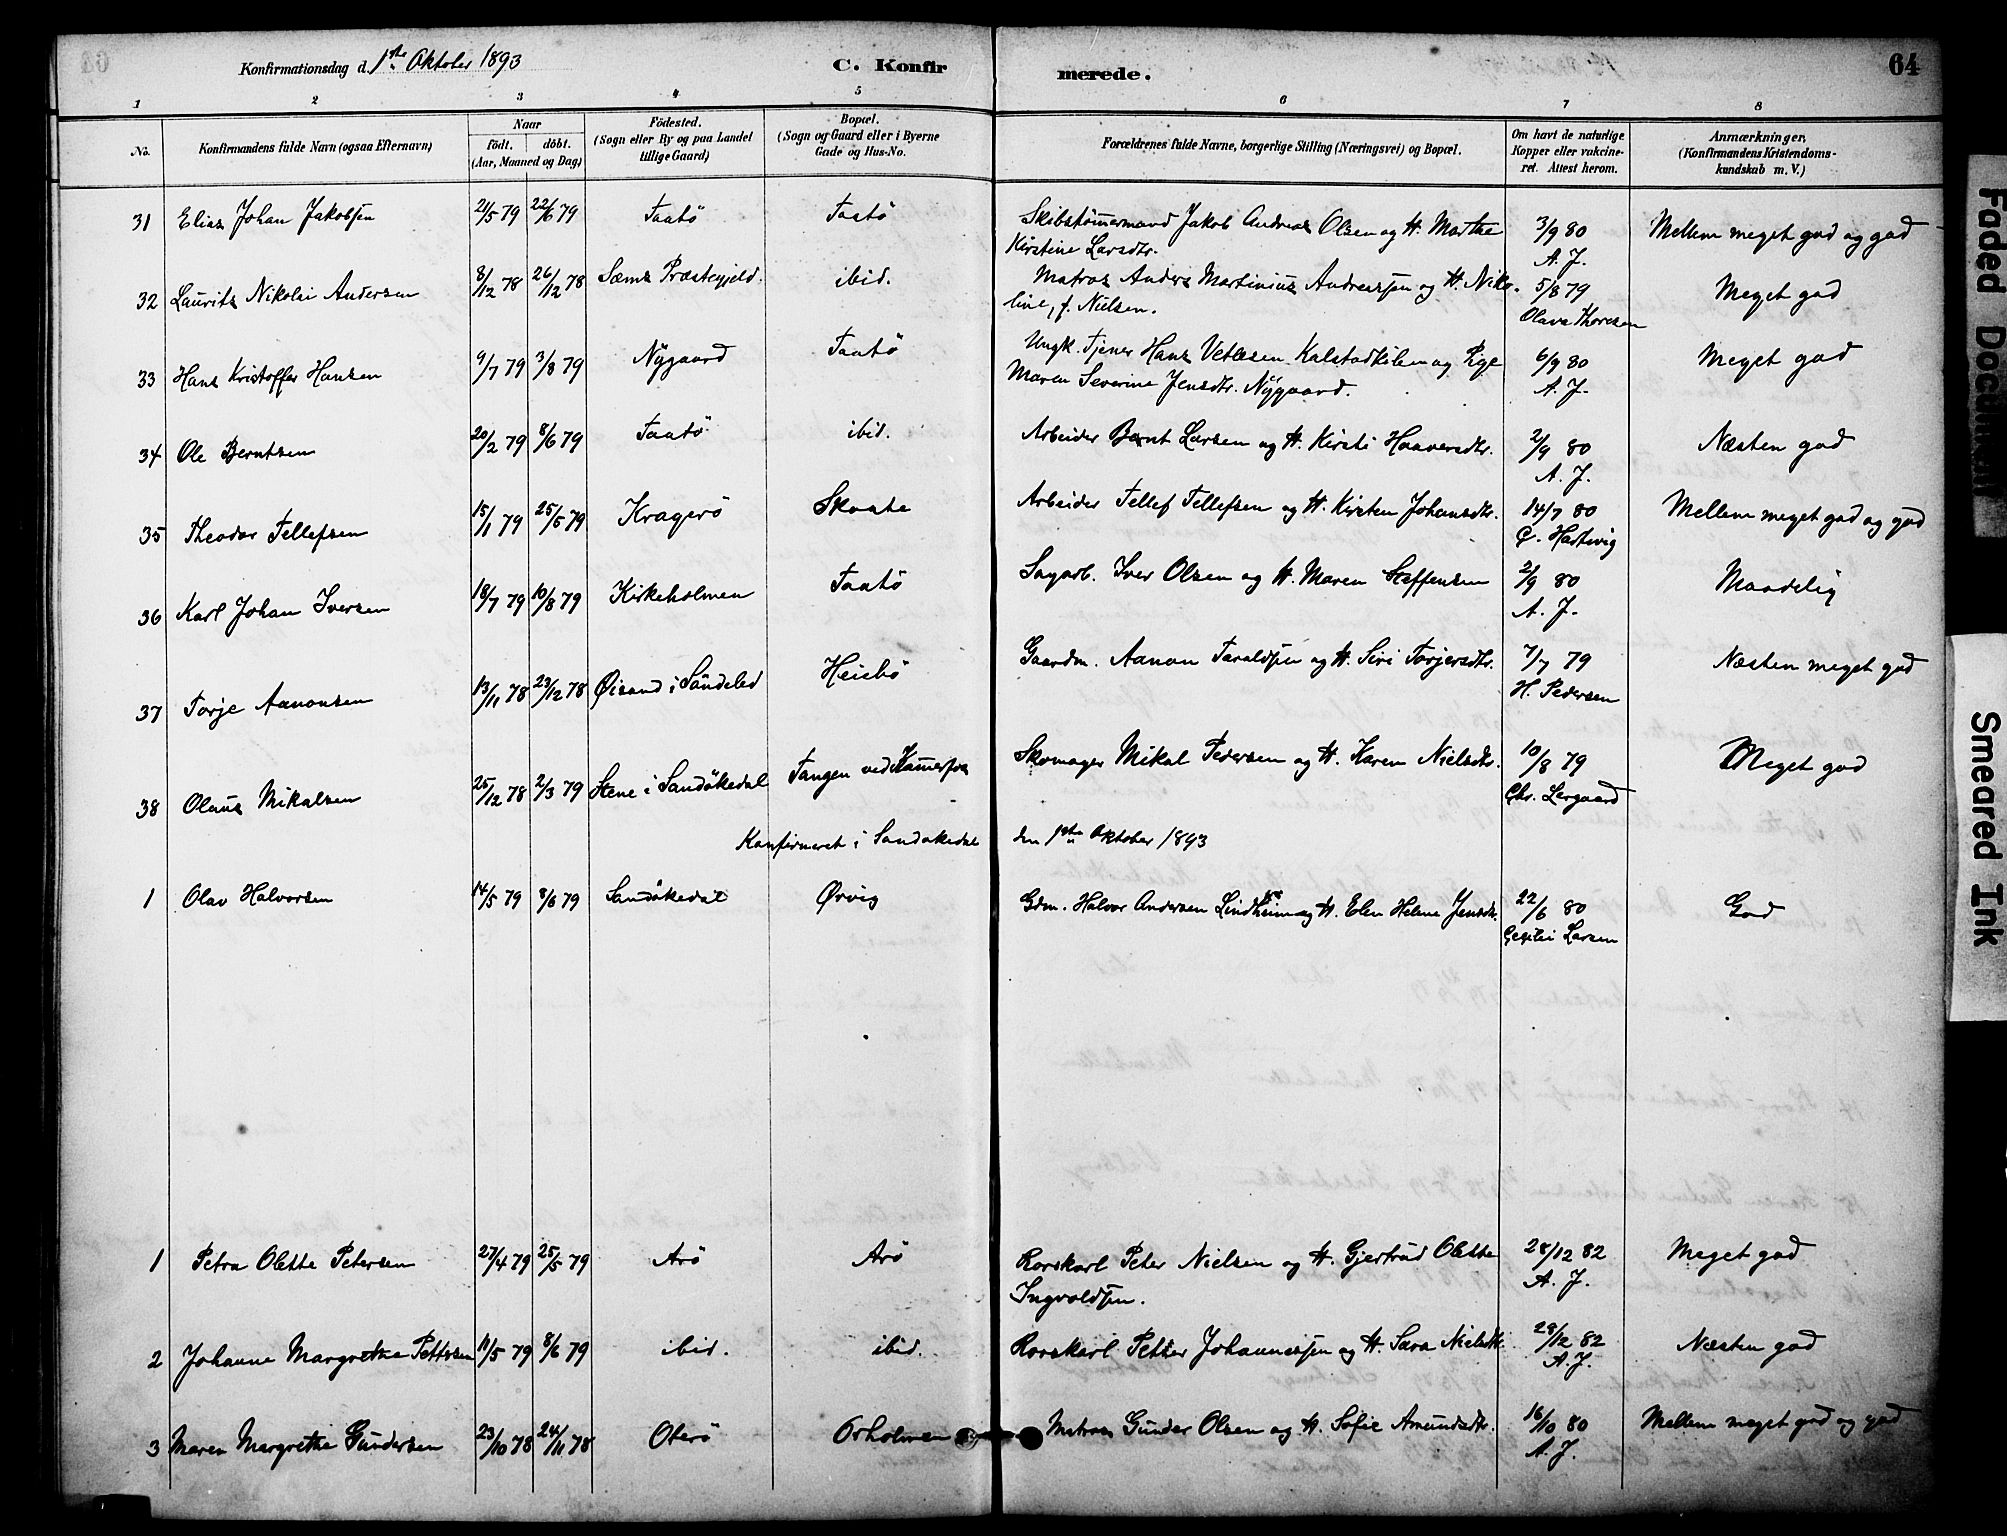 Konfirmationsdag d. 1ste Oktober 1893
C. Konfirmerede.
64
1 2 3 4 5 6 7 8
No.
Konfirmandens fulde Navn (ogsaa Efternavn)
Naar
født. døbt.
(Aar, Maaned og Dag)
Fødested.
(Sogn eller By og paa Landet
tillige Gaard)
Bopæl.
(Sogn og Gaard eller i Byerne
Gade og Hus-No.
Forældrenes fulde Navne, borgerlige Stilling (Næringsvei) og Bopæl.
Om havt de naturlige
Kopper eller vakcine-
ret. Attest herom.
Anmærkninger,
(Konfirmandens Kristendoms-
kundskab m. V.)
31 Elias Johan Jakobsen 21/5 79 22/6 79 Taatö Taatö Skibstømermand Jakob Andreas Olsen og H. Marthe 3/9 80 Mellem meget god og god
Kirstine Larsdtr. A. J.
32 Laurits Nikolai Andersen 8/12 78 26/12 78 Sems Præstegjeld. ibid. Matros Anders Martinius Andreassen og H. Niko- 5/8 79 Meget god
line, f. Nielsen. Olava Thoresen
33 Hans Kristoffer Hansen 9/7 79 3/8 79 Nygaard Taatö Ungk. Tjener Hans Vetlesen Kalstadkilen og Pige 6/9 80 Meget god
Maren Severine Jensdtr. Nygaard. A. J.
34 Ole Berntsen 20/2 79 8/6 79 Taatö ibid. Arbeider Bernt Larsen og H. Kirsti Haaversdtr. 2/9 80 Næsten god
A. J.
35 Theodor Tellefsen 15/1 79 25/5 79 Kragerö Skaate Arbeider Tellef Tellefsen og H. Kirsten Johansdtr. 14/7 80 Mellem meget god og god
C. Hartvig
36 Karl Johan Iversen 18/7 79 10/8 79 Kirkeholmen Taatö Sagarb. Iver Olsen og H. Maren Steffensen 2/9 80 Maadelig
A. J.
37 Torje Aanonsen 13/11 78 23/12 78 Øisand i Söndeled Heisbö Gaardm. Aanon Taraldsen og H. Siri Torjersdtr. 7/7 79 Næsten meget god
H. Pedersen
38 Olaus Mikalsen 25/12 78 2/3 79 Stene i Sandökedal Tangen ved Kamerfos Skomager Mikal Pedersen og H. Karen Nielsdtr. 10/8 79 Meget god
Chr. Lergaard
Konfirmeret i Sandökedal den 1ste Oktober 1893
1 Olav Halvorsen 14/5 79 8/6 79 Sandökedal Ørvig Gdm. Halvor Andersen Lindheim og H. Elen Helene Jensdtr. 22/6 80 God
Cecilie Larsen
1 Petra Olette Petersen 27/4 79 25/5 79 Arö Arö Rorskarl Peter Nielsen og H. Gjertrud Olette 28/12 82 Meget god
Ingvoldsen. A. J.
2 Johanne Margrethe Pettersen 11/5 79 8/6 79 ibid. ibid. Rorskarl Petter Johannessen og H. Sara Nielsdtr. 28/12 82 Næsten god
A. J.
3 Maren Margrethe Gundersen 23/10 78 24/11 78 Oterö Orholmen Matros Gunder Olsen og H. Sofie Amundsdtr. 16/10 80 Mellem meget god og god
A. J.
Faded Document
Smeared Ink